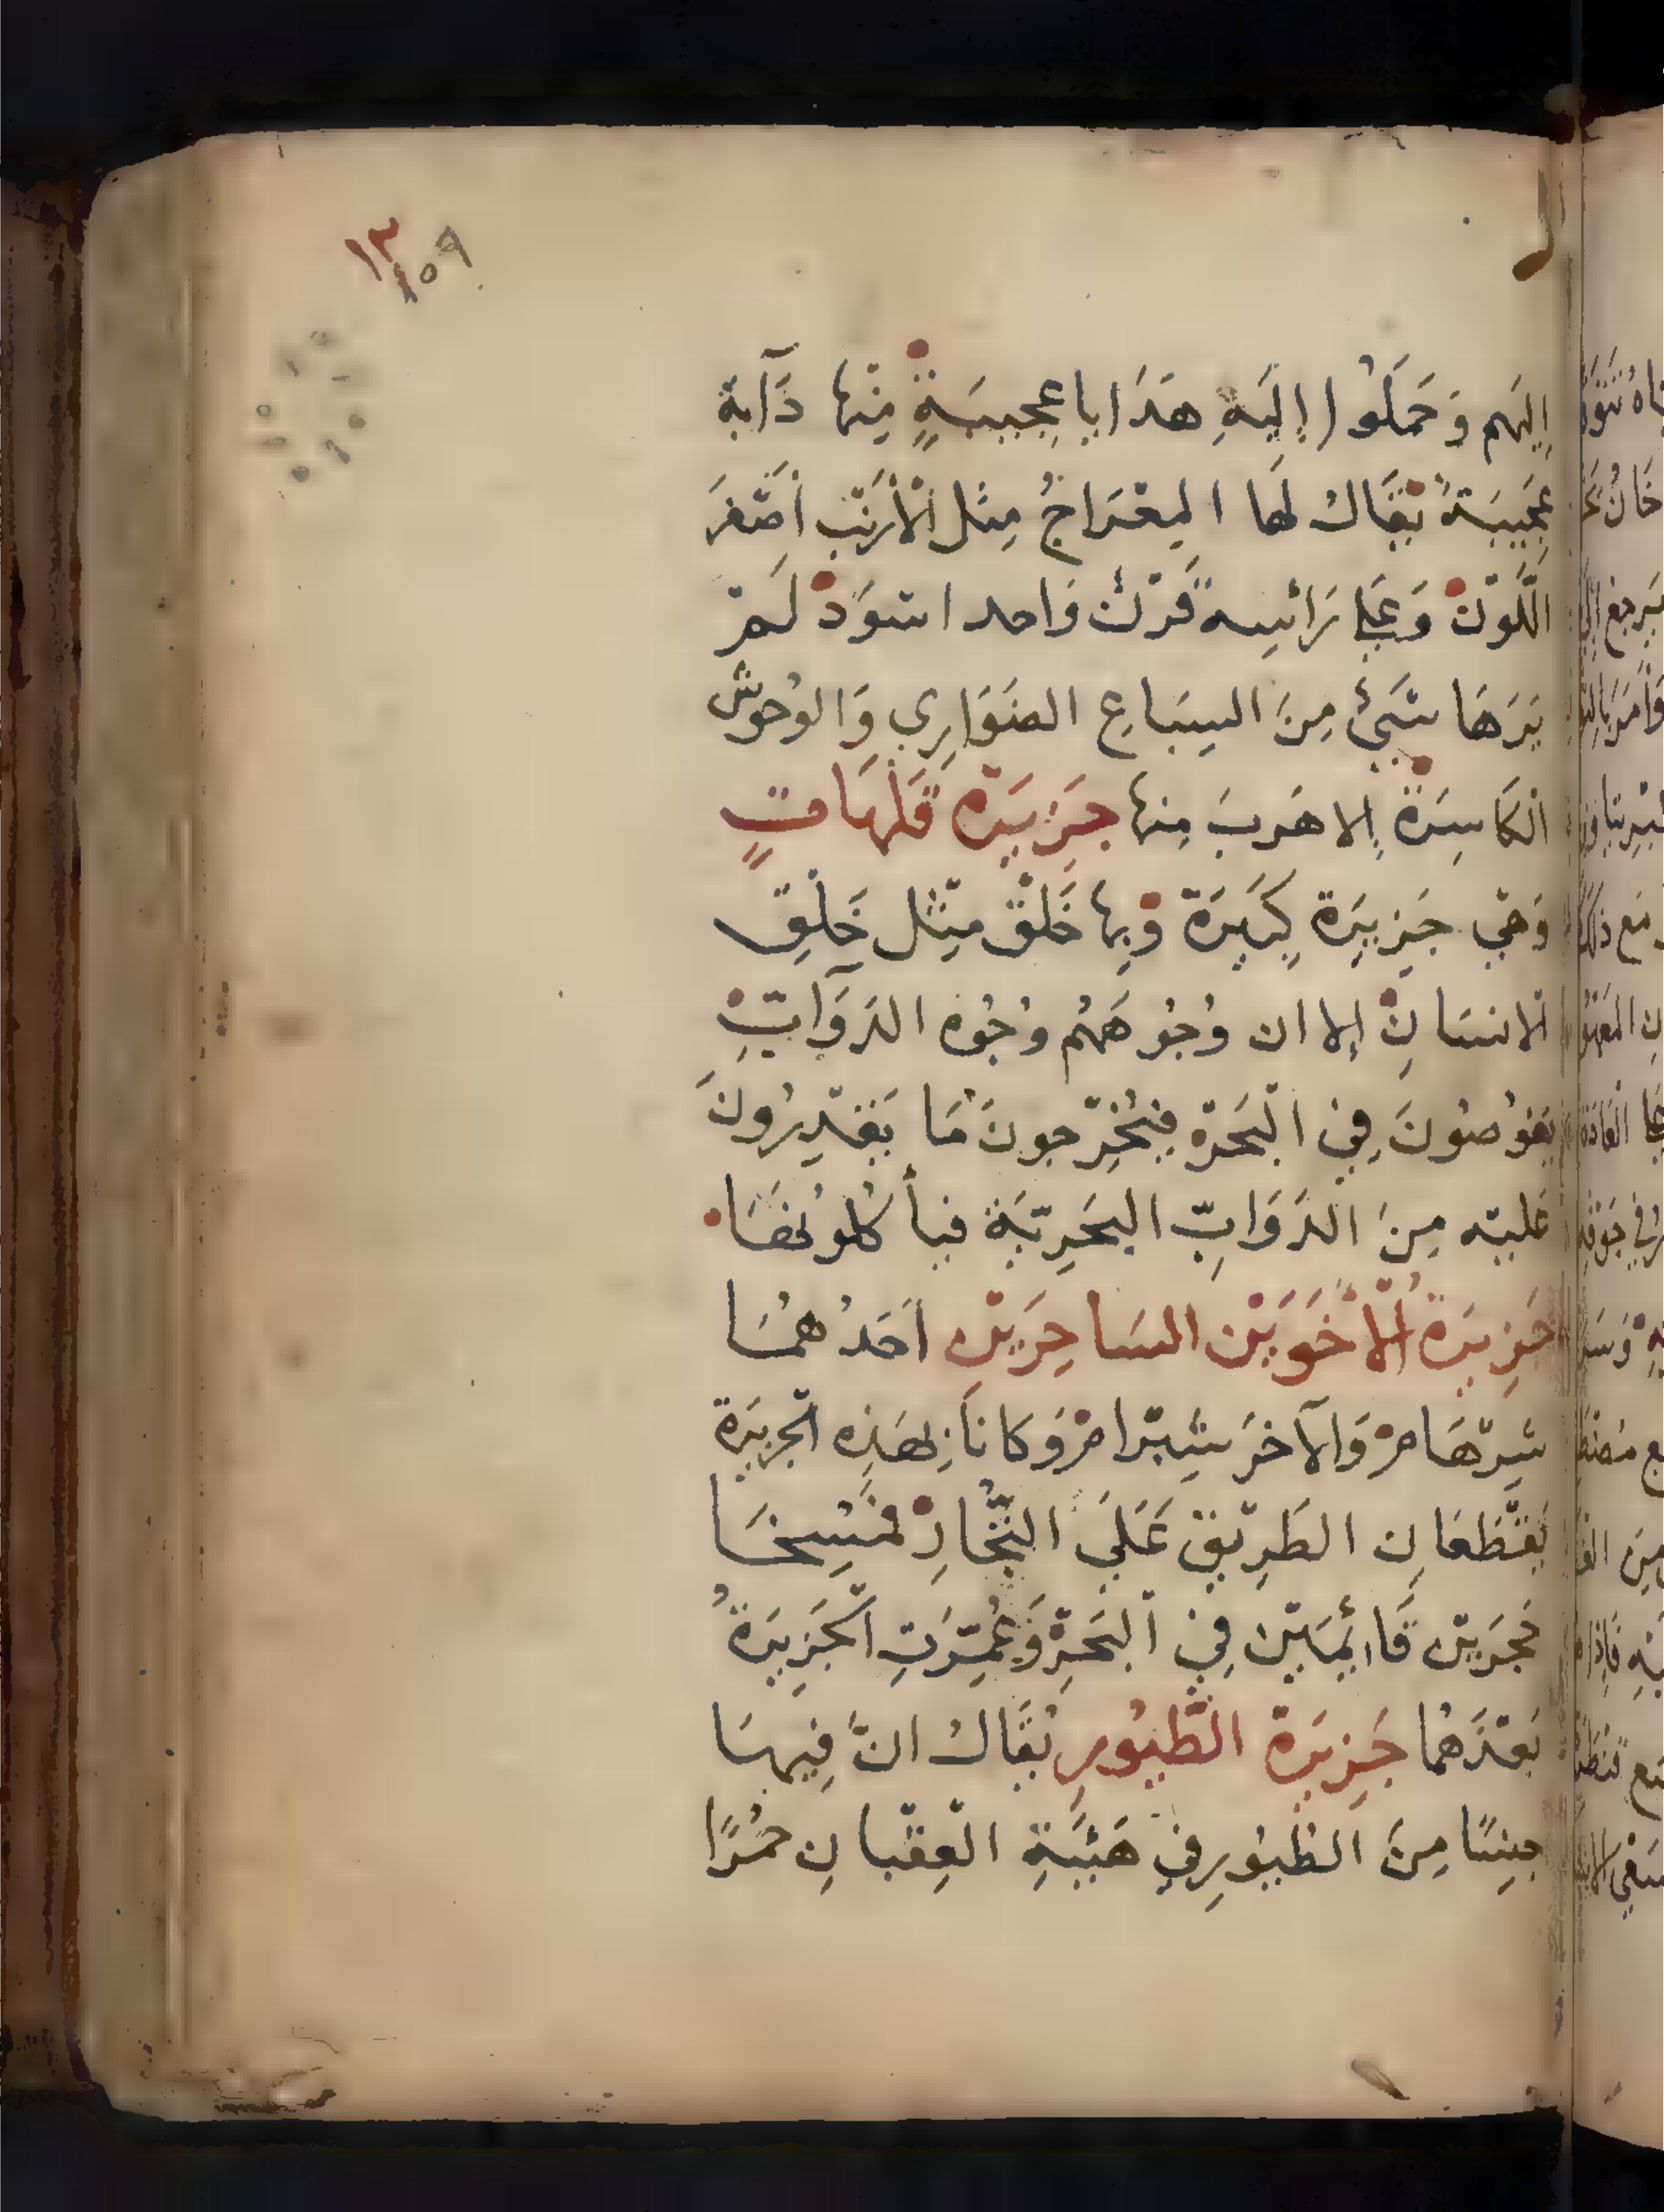 ١٣
١٥٩
إِلَيْهِم وَحَمَلُوا إِلَيْهِ هَدَايا عَجِيبَةٍ مِنْها دَآبة
عَجِيبَةً يُقَال لَها المِعْرَاجُ مِثل الْأَرْنَبِ أَصْفَرَ
اللَّوْنِ وَعَلى رَأْسِه قَرْن وَاحد اسْوَد لَمْ
يَرَهَا شَيْءٌ مِنَ السِبَاعِ الضَوَارِي وَالوُحوش
الْكَاسِرَة إِلا هَرَبَ مِنها جَزِيرَة قَلْهَاتٍ
وَهِي جَزِيرَة كَبِيرَة وَبِها خَلْق مِثْل خَلْقِ
الانسَانِ إِلا ان وُجُوهَهُم وُجُوه الدَوَآبِّ
يَغُوصُونَ فِي الْبَحْرِ فيُخْرِجونَ مَا يَقْدِرُونَ
عَلَيْه مِنَ الدَوَابِّ البَحْرِيَّة فيأكلونهَا
جَزِيرَة الْأَخَوَيْنِ السَاحِرَيْنِ أَحَدُهمَا
شِرْهَامْ وَالآخَر شِبْرَامْ وَكانَا بِهَذِه الْجَزِيرَة
يَقْطَعَانِ الطَرِيْق عَلَى التُّجَّارِ فَمُسِخَا
حَجَرَيْن قَائِمَيْن فِي الْبَحْرِ وَعُمِّرَتِ الْجَزِيرَةُ
بَعْدَهُما جَزِيرَة الطُّيُورِ يُقَال انَّ فِيهَا
جِنسًا مِنَ الطُيُورِ فِي هَيْئَةِ الْعِقْبانِ حُمْرًا